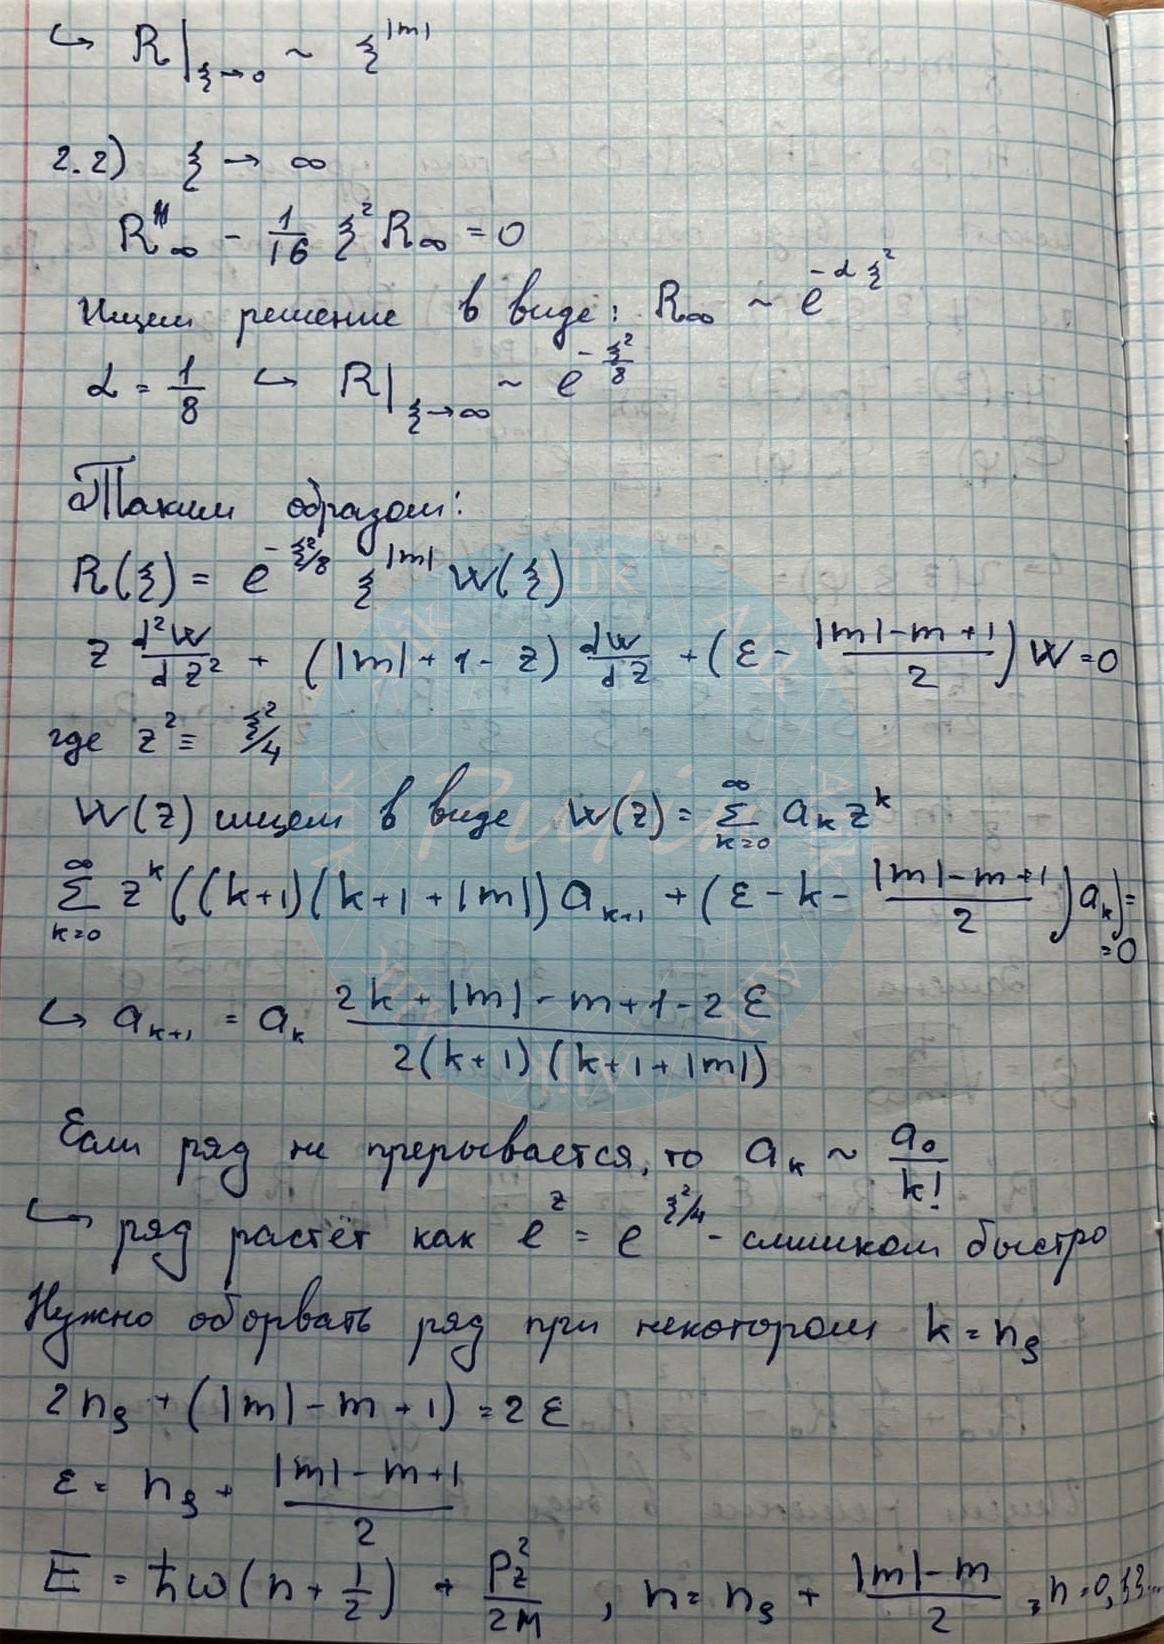 ↪ R|_{ξ→0} ~ ξ^{|m|}
2.2) ξ → ∞
R''_∞ - 1/16 ξ² R_∞ = 0
Ищем решение в виде: R_∞ ~ e^{-αξ²}
α = 1/8 ↪ R|_{ξ→∞} ~ e^{-ξ²/8}
Таким образом:
R(ξ) = e^{-ξ²/8} ξ^{|m|} W(ξ)
z d²W/dz² + (|m| + 1 - z) dW/dz + (ε - (|m| - m + 1)/2) W = 0
где z² ≡ ξ²/4
W(z) ищем в виде W(z) = Σ_{k=0}^{∞} a_k z^k
Σ_{k=0}^{∞} z^k ((k+1)(k+1+|m|) a_{k+1} + (ε - k - (|m| - m + 1)/2) a_k) =
= 0
↪ a_{k+1} = a_k (2k + |m| - m + 1 - 2ε)/(2(k+1)(k+1+|m|))
Если ряд не прерывается, то a_k ~ a_0/k!
↪ ряд растёт как e^z = e^{ξ²/4} - слишком быстро
Нужно оборвать ряд при некотором k = n_ρ
2n_ρ + (|m| - m + 1) = 2ε
ε = n_ρ + (|m| - m + 1)/2
E = ħω(n + 1/2) + p_z²/2M , n = n_ρ + (|m| - m)/2 , n = 0,1,2...